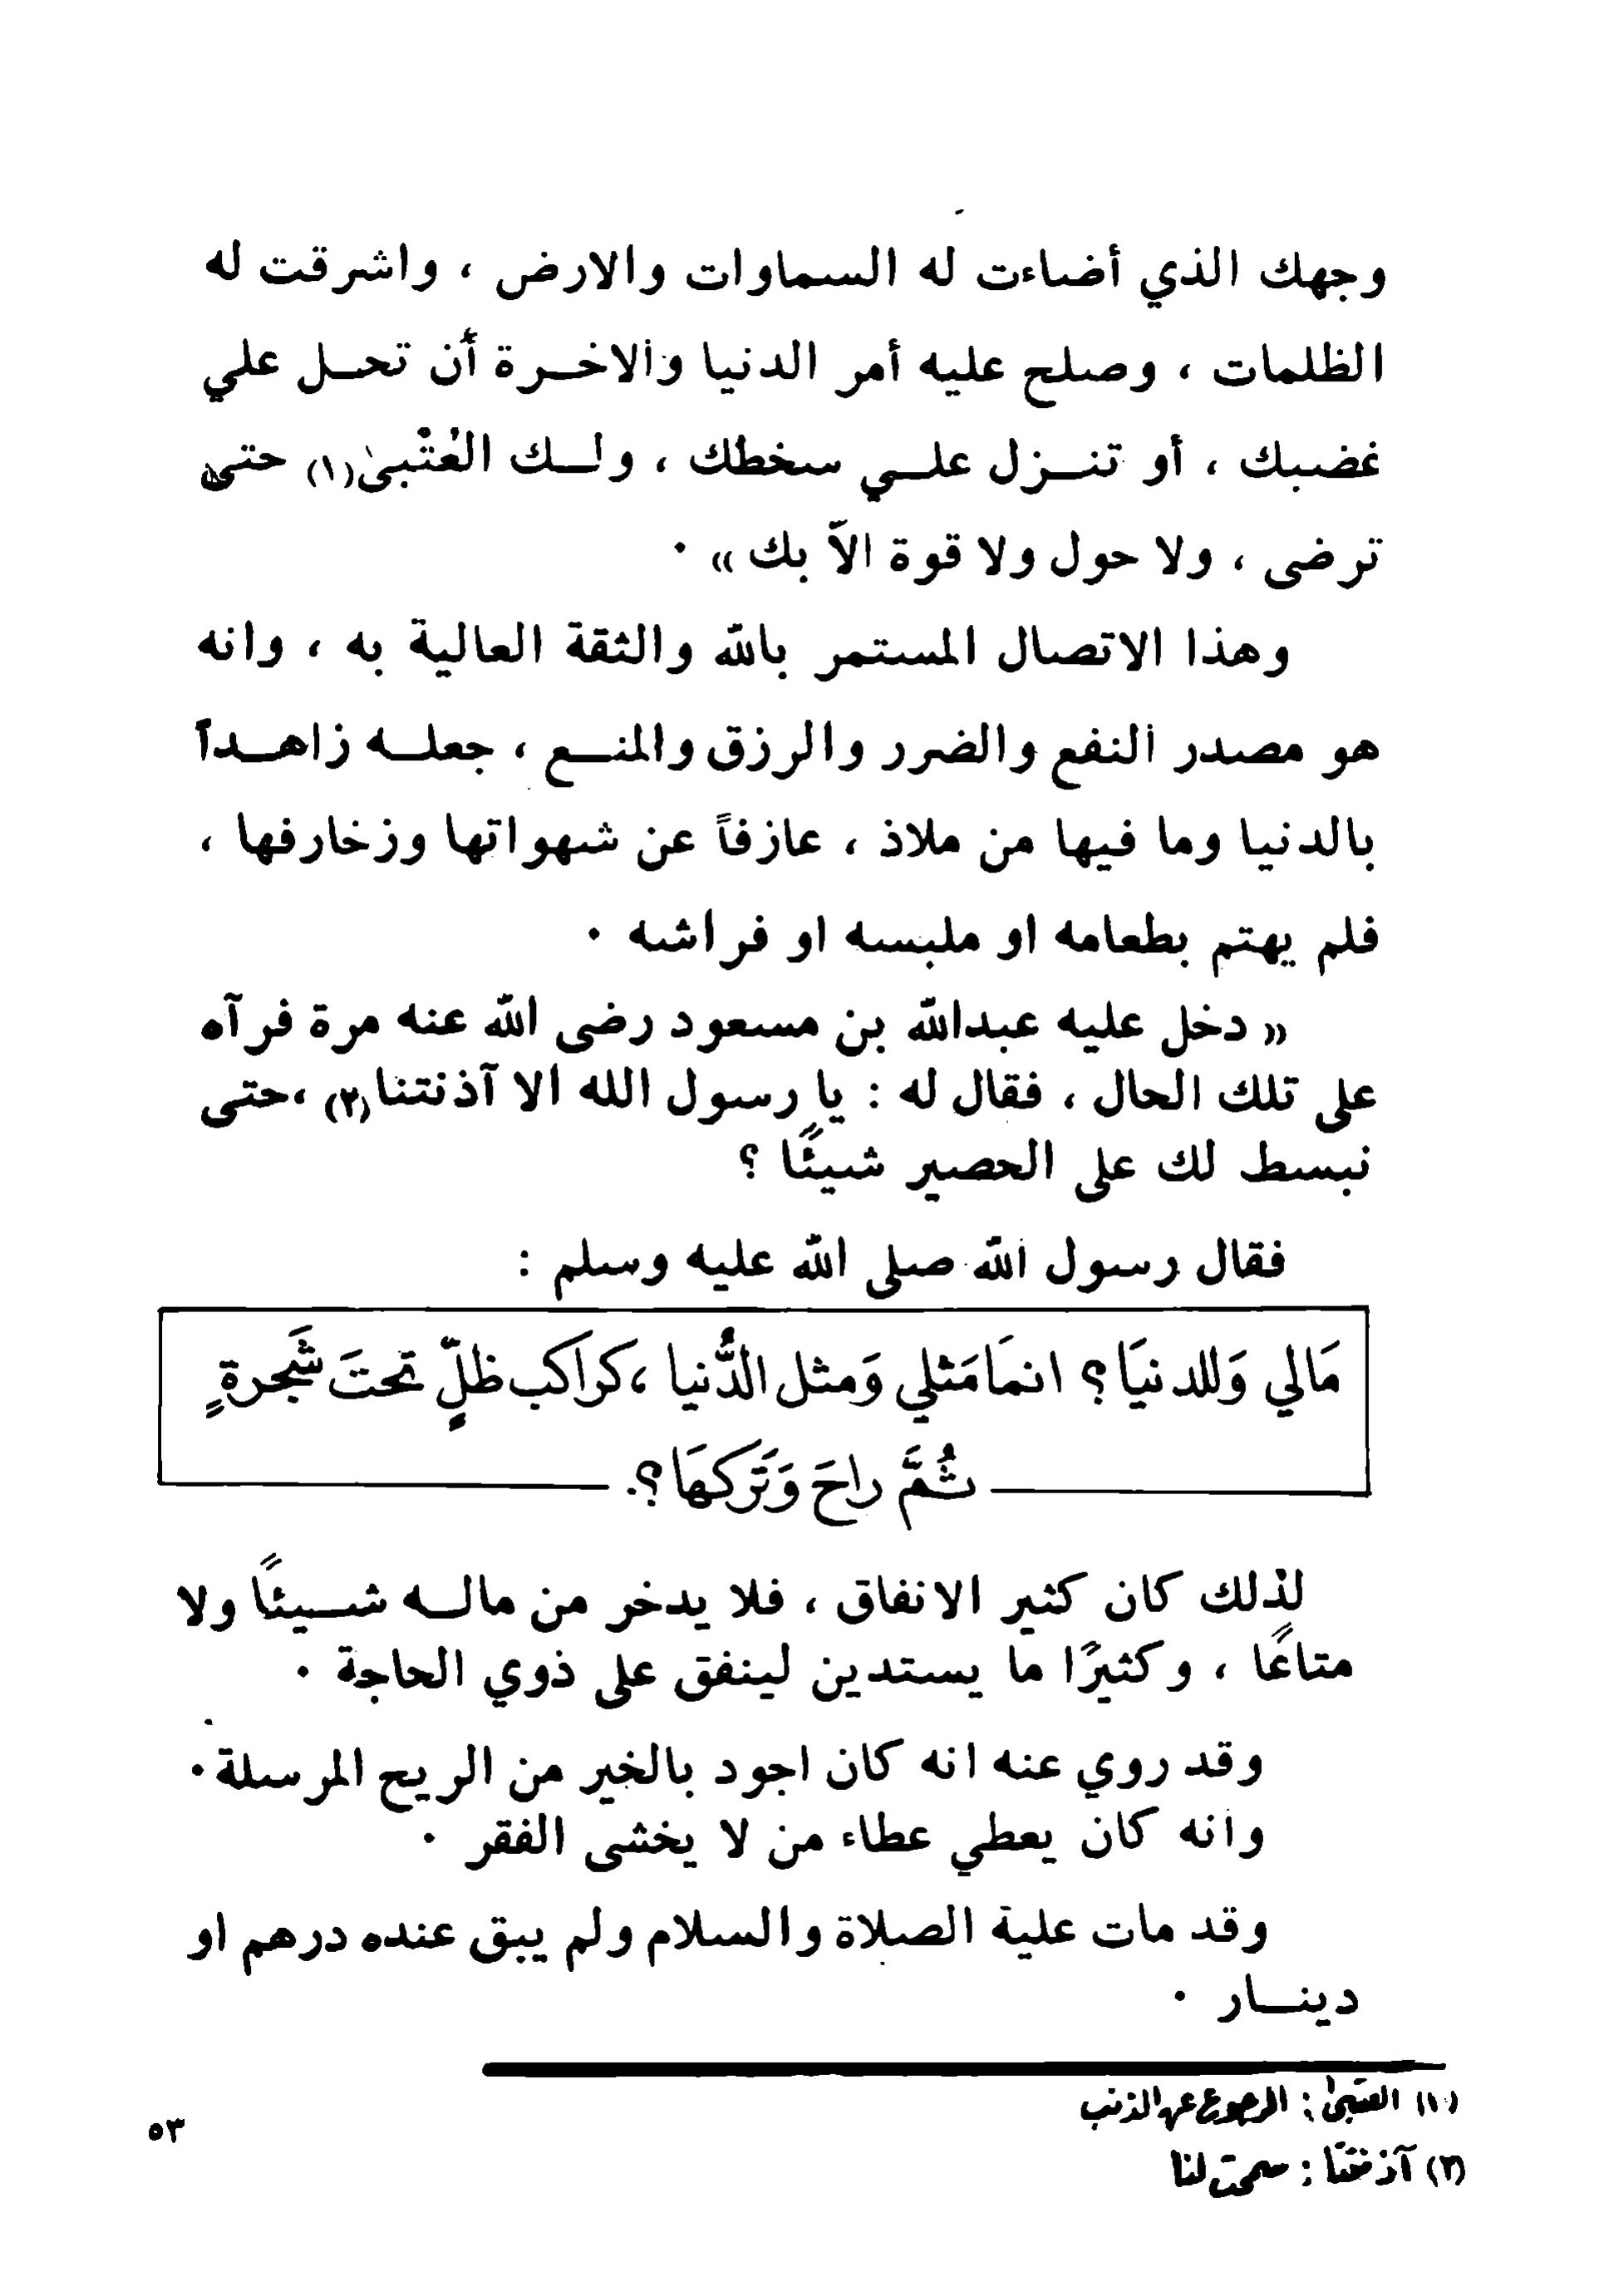 وجهك الذي أضاءت له السماوات والارض ، واشرقت له
الظلمات ، وصلح عليه أمر الدنيا والاخــرة أن تحــل علي
غضبك ، أو تنــزل علــي سخطك ، ولــك العُتْبىٰ(١) حتى
ترضى ، ولا حول ولا قوة الاّ بك » ٠
وهذا الاتصال المستمر بالله والثقة العالية به ، وانه
هو مصدر النفع والضرر والرزق والمنــع ، جعلــه زاهــداً
بالدنيا وما فيها من ملاذ ، عازفاً عن شهواتها وزخارفها ،
فلم يهتم بطعامه او ملبسه او فراشه ٠
« دخل عليه عبدالله بن مسعود رضى الله عنه مرة فرآه
على تلك الحال ، فقال له : يا رسول الله الا آذنتنا(٢) ،حتى
نبسط لك على الحصير شيئًا ؟
فقال رسول الله صلى الله عليه وسلم :
مَالي وَللدنيَا؟ انمَا مَثلي وَمثل الدُّنيا ،كراكب ظلّ تحتَ شَجرةٍ
ثُمَّ راحَ وَتَركهَا؟.
لذلك كان كثير الانفاق ، فلا يدخر من مالــه شــيئًا ولا
متاعًا ، وكثيرًا ما يستدين لينفق على ذوي الحاجة ٠
وقد روي عنه انه كان اجود بالخير من الريح المرسلة ٠
وانه كان يعطي عطاء من لا يخشى الفقر ٠
وقد مات علية الصلاة والسلام ولم يبق عنده درهم او
دينــار ٠
(١) العتبىٰ : الرجوع عن الذنب
(٢) آذنتنا : سمحت لنا
٥٣